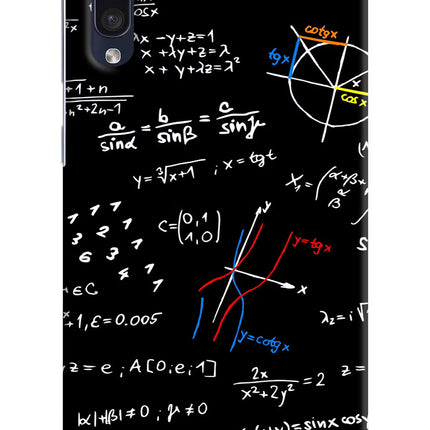 cosx
λx - y + z = 1
x + λy + z = λ
x + y + λz = λ²
cotgx
tgx
x
cosx
+1+n
n²+2n-1
a/sinα = b/sinβ = c/sinγ
y = ³√x+1 ; x = tgt
X₁ = (α+β+
α
β
1 1 1
3 2 1
6 3 1
4 1
C = (0,1
1,0)
y
y = tgx
x
y = cotgx
+EC
+1, ε = 0.005
λ₂ = i√
z = e ; A[0; e; 1]
2x/x²+2y² = 2
z =
|α|+|β| ≠ 0 ; γ ≠ 0
= sinx cosy